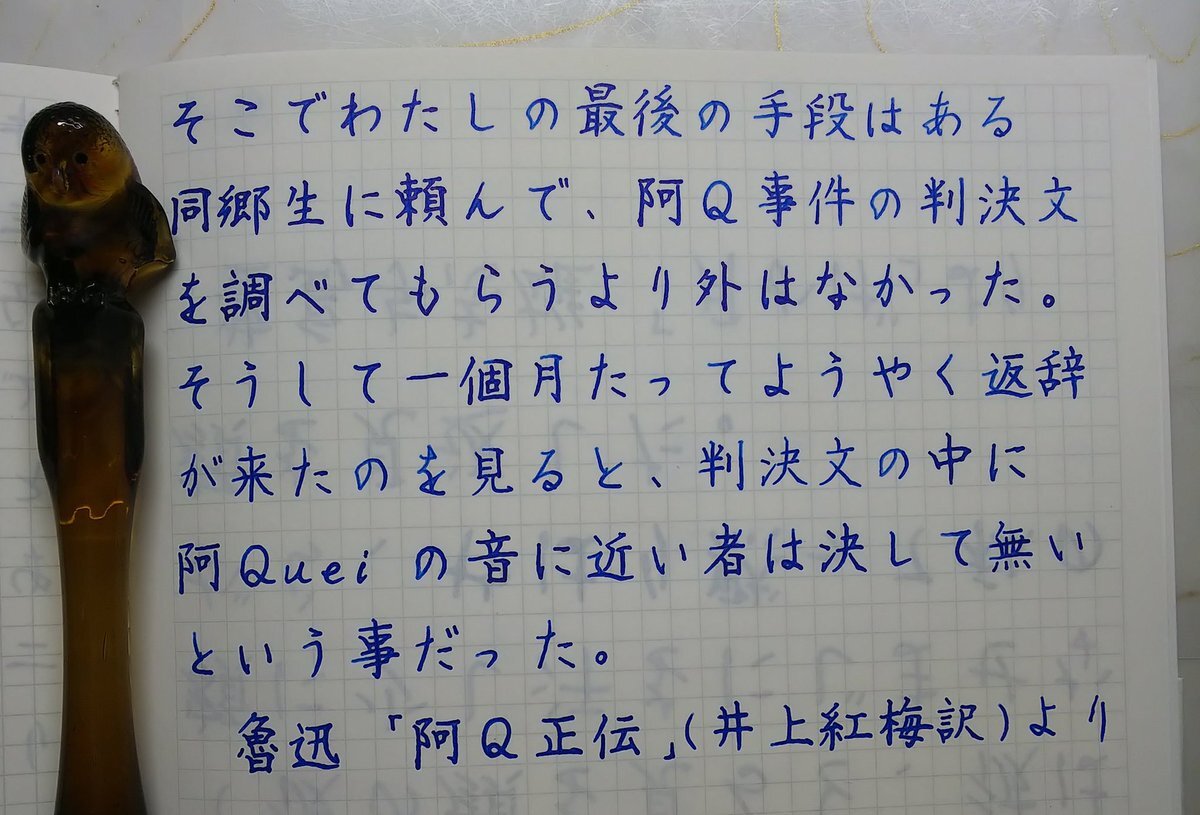 そこでわたしの最後の手段はある
同郷生に頼んで、阿Q事件の判決文
を調べてもらうより外はなかった。
そうして一個月たってようやく返辞
が来たのを見ると、判決文の中に
阿Queiの音に近い者は決して無い
という事だった。
魯迅「阿Q正伝」(井上紅梅訳)より